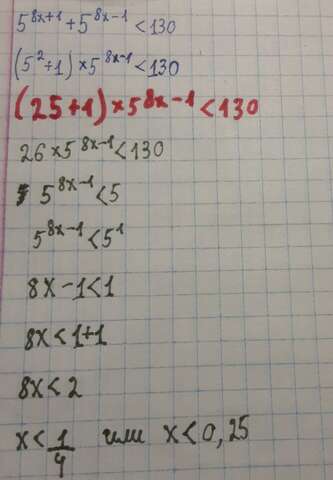 5^(8x+1) + 5^(8x-1) < 130
(5^2+1) × 5^(8x-1) < 130
(25+1) × 5^(8x-1) < 130
26 × 5^(8x-1) < 130
5^(8x-1) < 5
5^(8x-1) < 5^1
8x-1 < 1
8x < 1+1
8x < 2
x < 1/4 или x < 0,25